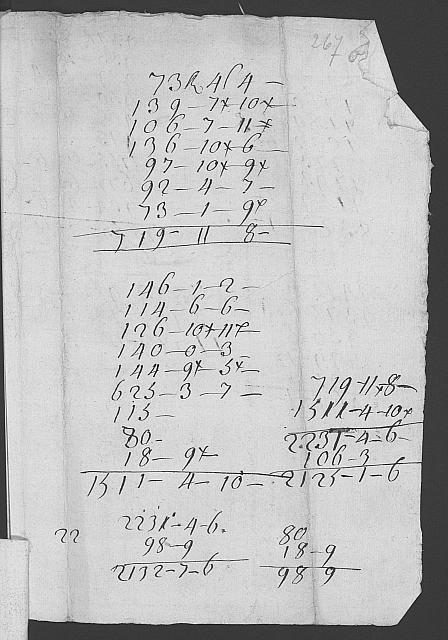 267
73 R 4 ſ 4 —
139 — 7 × 10 ×
106 — 7 — 11 ×
136 — 10 × 6 —
97 — 10 × 9 ×
92 — 4 — 7 —
73 — 1 — 9 ×
719 — 11 8 —
146 — 1 — 2 —
114 — 6 — 6 —
126 — 10 × 11 ×
140 — 0 — 3
144 — 9 × 5 ×
625 — 3 — 7 —
115 —
80 —
18 — 9 ×
1511 — 4 — 10 —
719 — 11 × 8 —
1511 — 4 — 10 ×
2231 — 4 — 6 —
106 — 3
2125 — 1 — 6
22
2231 — 4 — 6
98 — 9
2132 — 7 — 6
80
18 — 9
98 9